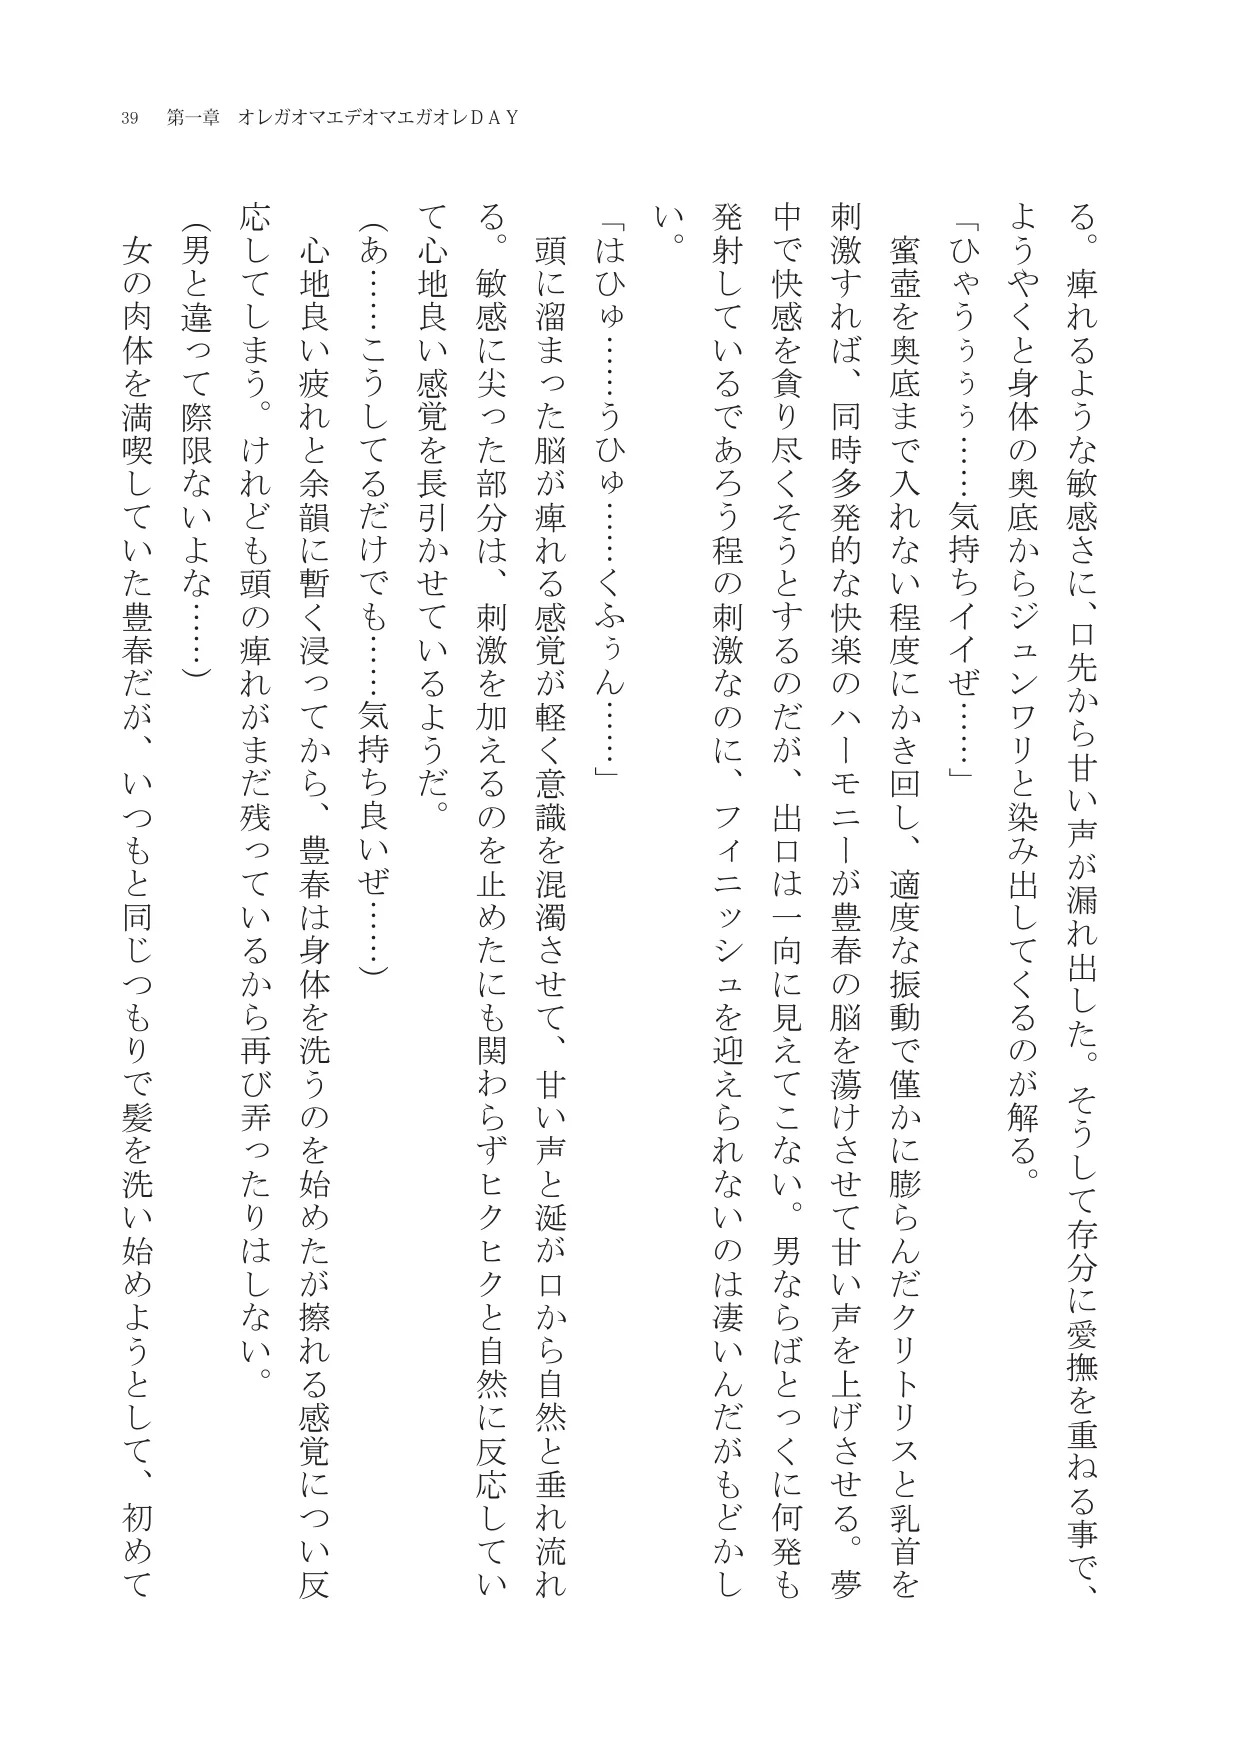 39　第一章　オレガオマエデオマエガオレDAY
る。痺れるような敏感さに、口先から甘い声が漏れ出した。そうして存分に愛撫を重ねる事で、
ようやくと身体の奥底からジュンワリと染み出してくるのが解る。
「ひゃうぅぅぅ……気持ちイイぜ……」
　蜜壺を奥底まで入れない程度にかき回し、適度な振動で僅かに膨らんだクリトリスと乳首を
刺激すれば、同時多発的な快楽のハーモニーが豊春の脳を蕩けさせて甘い声を上げさせる。夢
中で快感を貪り尽くそうとするのだが、出口は一向に見えてこない。男ならばとっくに何発も
発射しているであろう程の刺激なのに、フィニッシュを迎えられないのは凄いんだがもどかし
い。
「はひゅ……うひゅ……くふぅん……」
　頭に溜まった脳が痺れる感覚が軽く意識を混濁させて、甘い声と涎が口から自然と垂れ流れ
る。敏感に尖った部分は、刺激を加えるのを止めたにも関わらずヒクヒクと自然に反応してい
て心地良い感覚を長引かせているようだ。
（あ……こうしてるだけでも……気持ち良いぜ……）
　心地良い疲れと余韻に暫く浸ってから、豊春は身体を洗うのを始めたが擦れる感覚につい反
応してしまう。けれども頭の痺れがまだ残っているから再び弄ったりはしない。
（男と違って際限ないよな……）
　女の肉体を満喫していた豊春だが、いつもと同じつもりで髪を洗い始めようとして、初めて